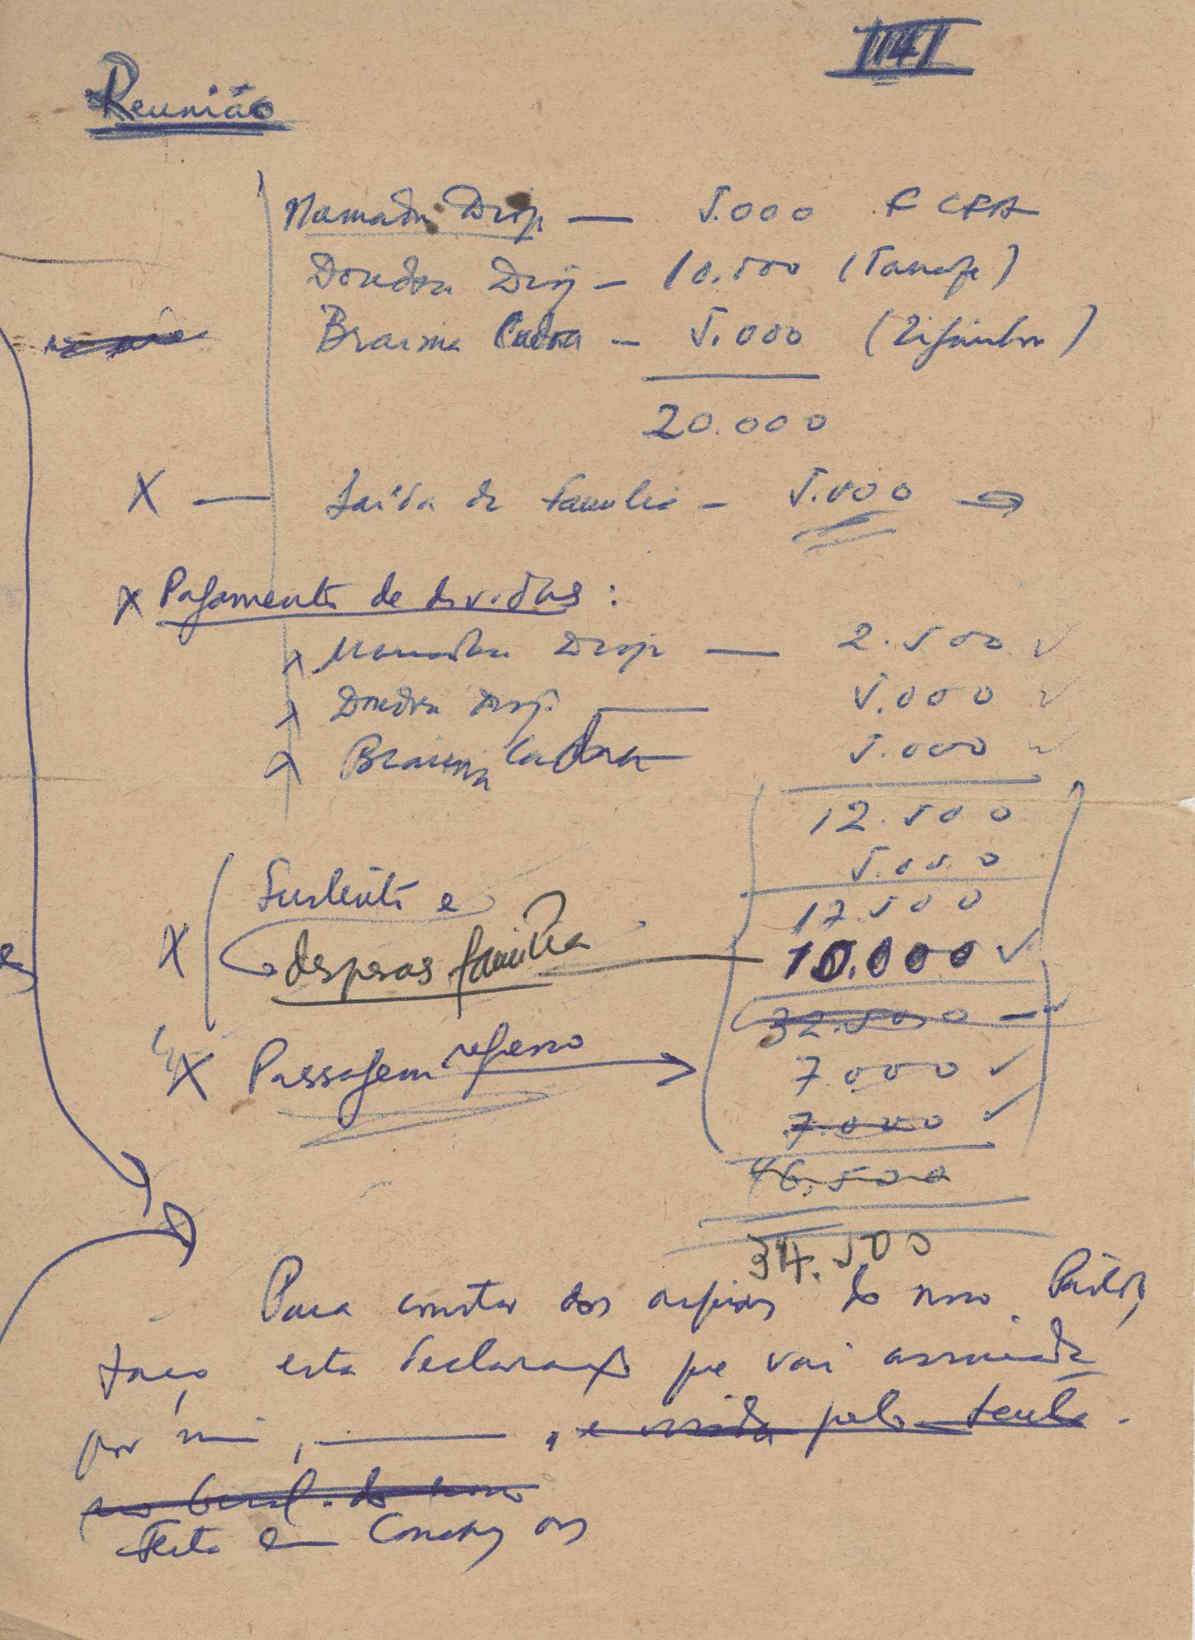 III
Reunião
Mamadu Diop — 5.000 F CFA
Doudou Diop — 10.500
Braima Cadra — 5.000
20.000
X — Saída de família — 5.000
X Pagamento de dívidas :
X Mamadu Diop — 2.500 ✓
X Doudou Diop — 5.000 ✓
X Braima Cadra — 5.000 ✓
12.500
5.000
17.500
X Sustento e
despesas família — 10.000 ✓
32.500
X Passagem regresso → 7.000 ✓
7.000 ✓
46.500
34.500
Para constar dos arquivos do nosso Partido,
faço esta declaração que vai assinada
por mim, ———, e visada pelo Secretá-
rio Geral do nosso
Feito em Conakry aos